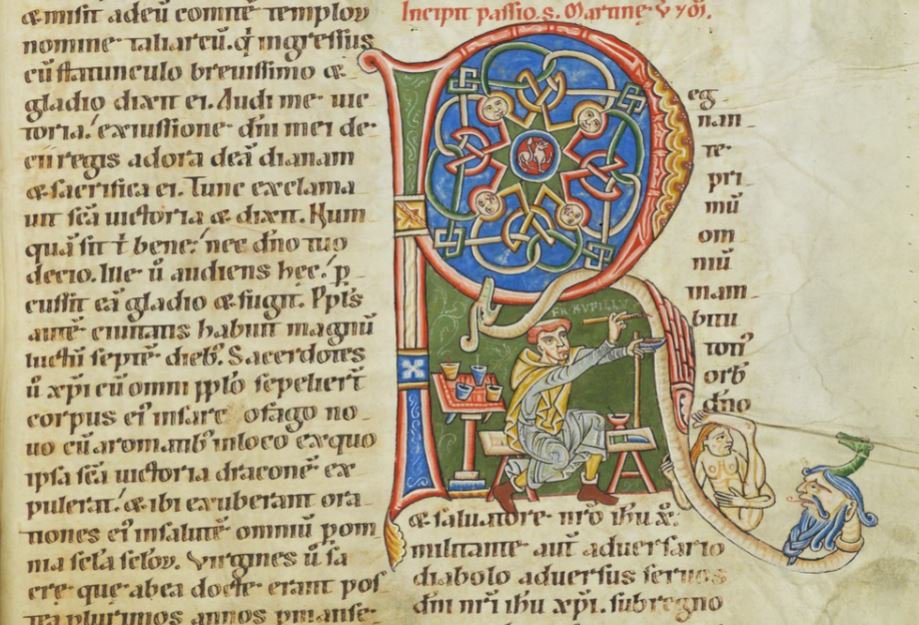 & misit adeũ comitẽ temploꝝ
nomine taliarcũ. q̇ ingressus
cũ statunculo breuissimo &
gladio dixit ei. Audi me uic
toria! exiussione dñi mei de
cii regis adora deã dianam
& sacrifica ei. Tunc exclama
uit sc̃a uictoria & dixit. Num
quã sit t̃ bene! nec dño tuo
decio. Ille ũ audiens hec! p
cussit eã gladio & fugit. Ppl̃s
autẽ ciuitatis habuit magnũ
luctũ septẽ dieb. Sacerdotes
ũ xp̃i cũ omni pplo sepeliert̃
corpus ei insarc ofago no
uo cũ aromatib inloco exquo
ipsa sc̃a uictoria draconẽ ex
pulerat! & ibi exuberant ora
tiones ei insalutẽ omniũ
Virgines ũ sa
cre que abea docte erant pos
tea plurimos annos pmanse
Incipit passio. s. Martinę. v̓ &
R
eg
nan
te
pri
mũ
om
niũ
inam
bitu
toti
orb
dño
FR RVFILLV
& saluatore nr̃o ihu x̃.
militante aut aduersario
diabolo aduersus seruos
dñi nr̃i ihu xp̃i. sub regno